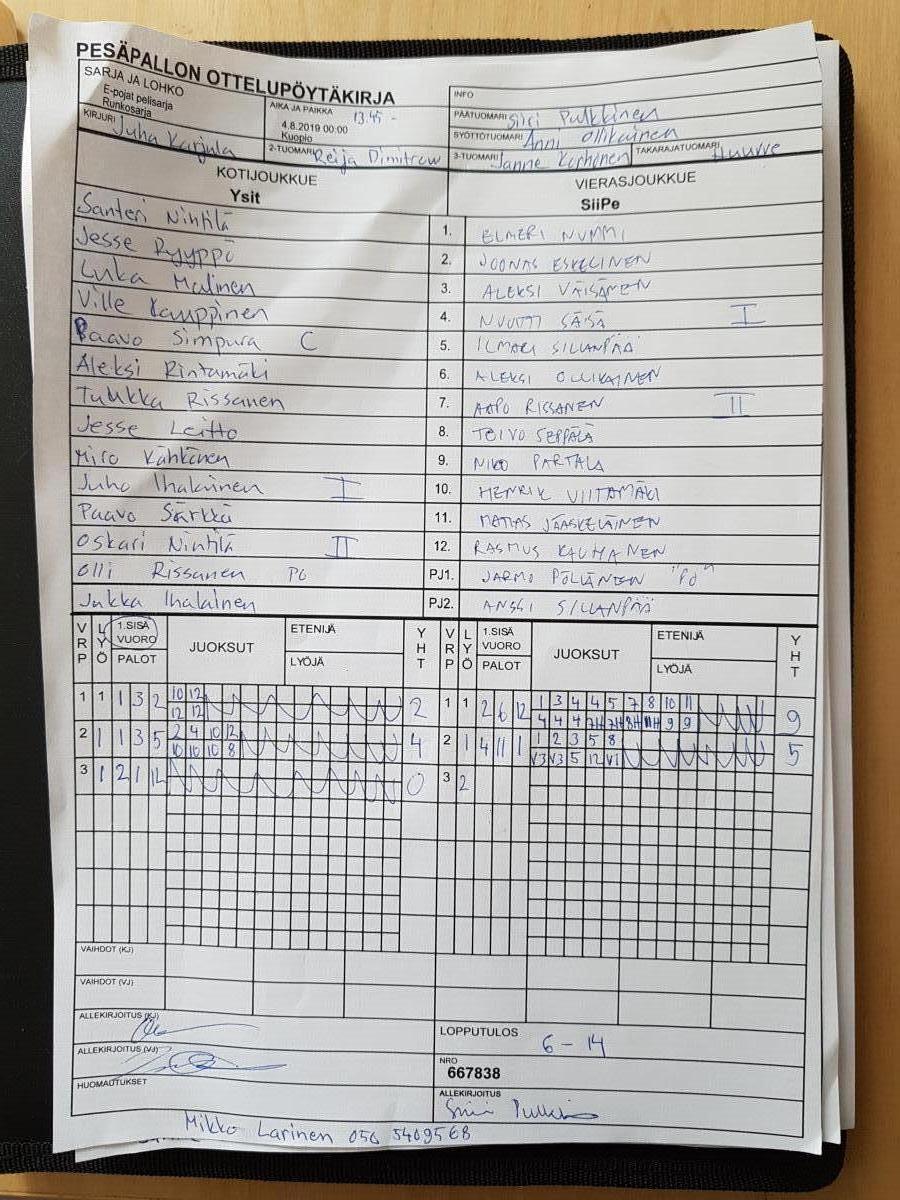 PESÄPALLON OTTELUPÖYTÄKIRJA
SARJA JA LOHKO
E-pojat pelisarja
Runkosarja
AIKA JA PAIKKA 13.45 -
4.8.2019 00:00
Kuopio
INFO
PÄÄTUOMARI Siiri Pulkkinen
KIRJURI Juha Karjula
2-TUOMARI Reija Dimitrow
SYÖTTÖTUOMARI Anni Ollikainen
3-TUOMARI Janne Korhonen
TAKARAJATUOMARI Huurre
KOTIJOUKKUE
Ysit
VIERASJOUKKUE
SiiPe
Santeri Nintilä 1. ELMERI NUMMI
Jesse Ryyppö 2. JOONAS ESKELINEN
Luka Malinen 3. ALEKSI VÄISÄNEN
Ville Kamppinen 4. NUUTTI SÄISÄ I
Paavo Simpura C 5. ILMARI SILLANPÄÄ
Aleksi Rintamäki 6. ALEKSI OLLIKAINEN
Tuukka Rissanen 7. AAPO RISSANEN II
Jesse Leitto 8. TOIVO SEPPÄLÄ
Miro Kähkönen 9. NIKO PARTALA
Juho Ihalainen I 10. HENRIK VIITAMÄKI
Paavo Särkkä 11. MATIAS JÄÄSKELÄINEN
Oskari Nintilä II 12. RASMUS KAUHANEN
Olli Rissanen PJ1. JARMO PÖLLÄNEN "PJ"
Jukka Ihalainen PJ2. ANSSI SILLANPÄÄ
VRP LYÖ 1.SISÄ VUORO PALOT JUOKSUT ETENIJÄ LYÖJÄ YHT VRP LYÖ 1.SISÄ VUORO PALOT JUOKSUT ETENIJÄ LYÖJÄ YHT
1 1 1 3 2 10 12 2 1 1 2 6 12 1 3 4 4 5 7 8 10 11 9
12 12 4 4 4 7H 7H 8H 11H 9 9
2 1 1 3 5 2 4 10 12 4 2 1 4 11 1 1 2 3 5 8 5
10 10 10 8 V3 V3 5 12 V1
3 1 2 1 12 0 3 2
VAIHDOT (KJ)
VAIHDOT (VJ)
ALLEKIRJOITUS (KJ)
LOPPUTULOS 6 - 14
ALLEKIRJOITUS (VJ)
NRO
667838
HUOMAUTUKSET
ALLEKIRJOITUS
Mikko Larinen